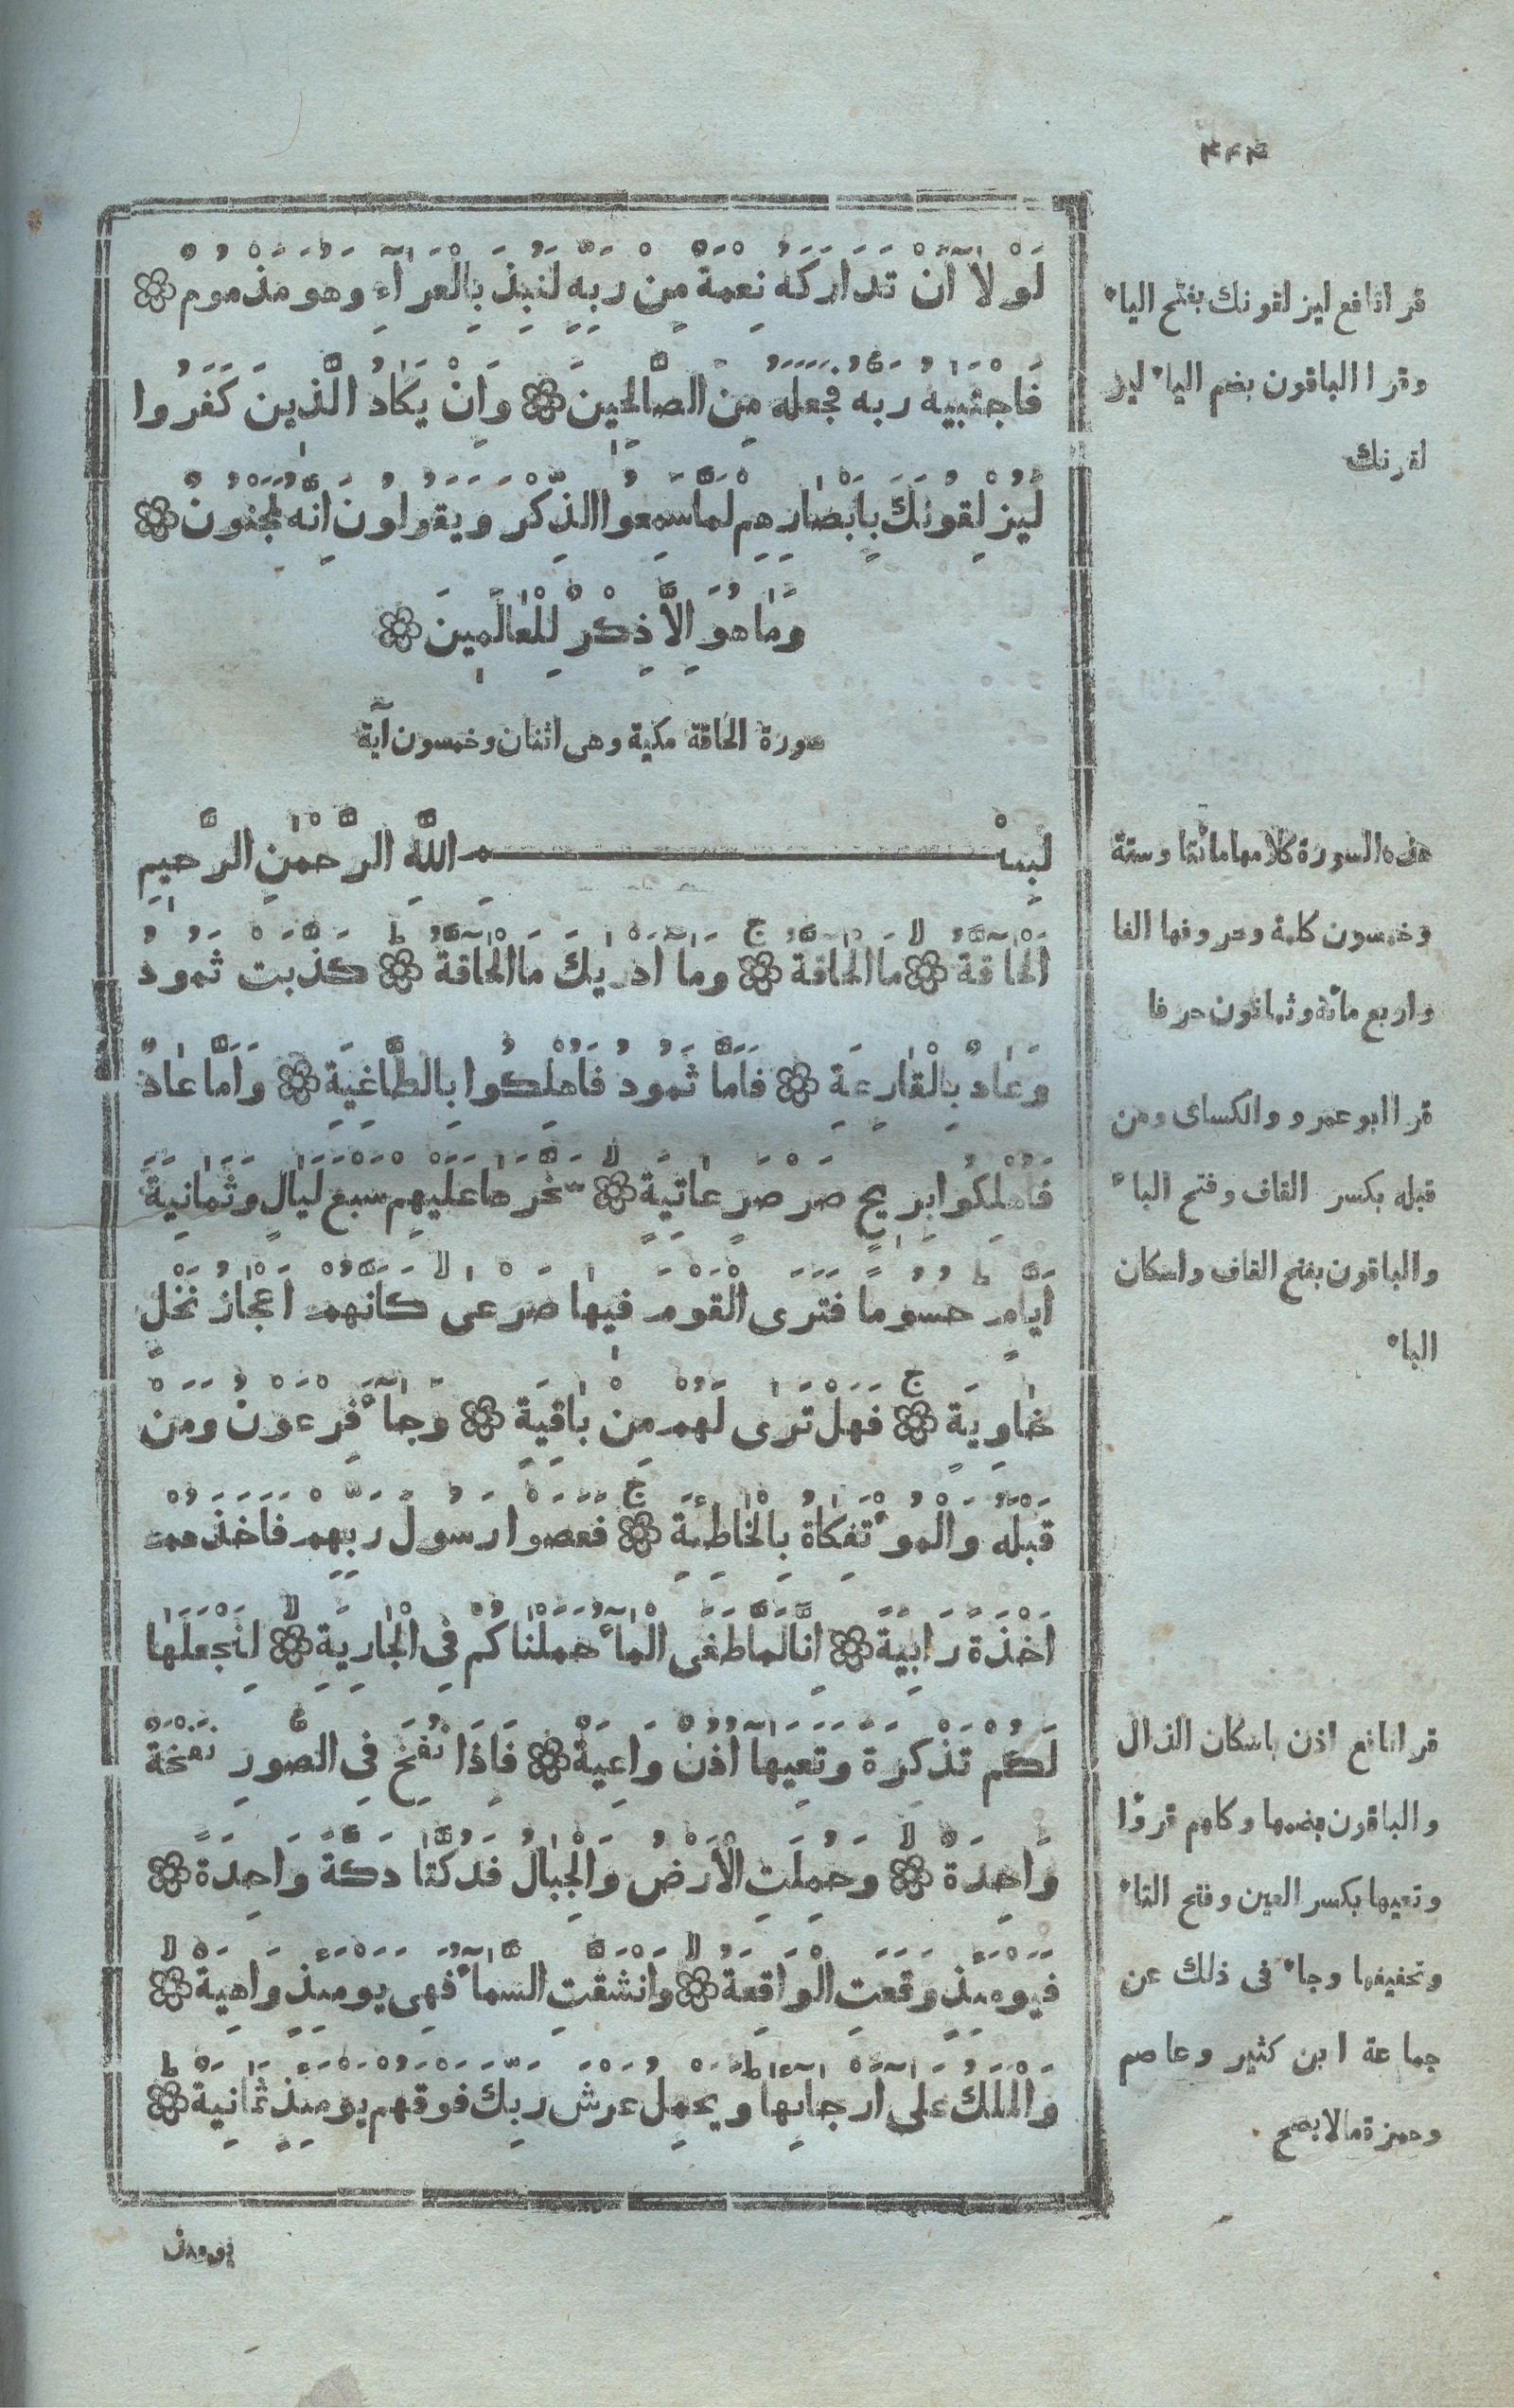 ٤٤٤
لَوْلَآ اَنْ تَدَارَكَهُ نِعْمَةٌ مِنْ رَبِّهِ لَنُبِذَ بِالْعَرَآءِ وَهُوَ مَذْمُومٌ
فَاجْتَبٰيهُ رَبُّهُ فَجَعَلَهُ مِنَ الصَّالِحٖينَ وَاِنْ يَكَادُ الَّذٖينَ كَفَرُوا
لَيُزْلِقُونَكَ بِاَبْصَارِهِمْ لَمَّا سَمِعُوا الذِّكْرَ وَيَقُولُونَ اِنَّهُ لَمَجْنُونٌ
وَمَا هُوَ اِلَّا ذِكْرٌ لِلْعَالَمٖينَ
سورة الحاقة مكية وهى اثنتان وخمسون آية
بِسْمِ اللَّهِ الرَّحْمٰنِ الرَّحٖيمِ
اَلْحَآقَّةُ مَا الْحَآقَّةُ ج وَمَآ اَدْرٰيكَ مَا الْحَآقَّةُ ط كَذَّبَتْ ثَمُودُ
وَعَادٌ بِالْقَارِعَةِ فَاَمَّا ثَمُودُ فَاُهْلِكُوا بِالطَّاغِيَةِ وَاَمَّا عَادٌ
فَاُهْلِكُوا بِرٖيحٍ صَرْصَرٍ عَاتِيَةٍ لا سَخَّرَهَا عَلَيْهِمْ سَبْعَ لَيَالٍ وَثَمَانِيَةَ
اَيَّامٍ حُسُومًا فَتَرَى الْقَوْمَ فٖيهَا صَرْعٰى كَاَنَّهُمْ اَعْجَازُ نَخْلٍ
خَاوِيَةٍ ج فَهَلْ تَرٰى لَهُمْ مِنْ بَاقِيَةٍ وَجَآءَ فِرْعَوْنُ وَمَنْ
قَبْلَهُ وَالْمُؤْتَفِكَاتُ بِالْخَاطِئَةِ ج فَعَصَوْا رَسُولَ رَبِّهِمْ فَاَخَذَهُمْ
اَخْذَةً رَابِيَةً اِنَّا لَمَّا طَغَى الْمَآءُ حَمَلْنَاكُمْ فِى الْجَارِيَةِ لا لِنَجْعَلَهَا
لَكُمْ تَذْكِرَةً وَتَعِيَهَآ اُذُنٌ وَاعِيَةٌ فَاِذَا نُفِخَ فِى الصُّورِ نَفْخَةٌ
وَاحِدَةٌ لا وَحُمِلَتِ الْاَرْضُ وَالْجِبَالُ فَدُكَّتَا دَكَّةً وَاحِدَةً
فَيَوْمَئِذٍ وَقَعَتِ الْوَاقِعَةُ لا وَانْشَقَّتِ السَّمَآءُ فَهِىَ يَوْمَئِذٍ وَاهِيَةٌ لا
وَالْمَلَكُ عَلٰٓى اَرْجَآئِهَا ط وَيَحْمِلُ عَرْشَ رَبِّكَ فَوْقَهُمْ يَوْمَئِذٍ ثَمَانِيَةٌ ط
قرا نافع ليزلقونك بفتح الياء
وقرا الباقون بضم الياء ليز
لقونك
هذه السورة كلامها مائتا وستة
وخمسون كلمة وحروفها الفا
واربع مائة وثمانون حرفا
قرا ابو عمرو والكساى ومن
قبله بكسر القاف وفتح الباء
والباقون بفتح القاف واسكان
الباء
قرا نافع اذن باسكان الذال
والباقون بضمها وكلهم قروٗا
وتعيها بكسر العين وفتح التاء
وتخفيفها وجاء فى ذلك عن
جماعة ابن كثير وعاصم
وحمزة مالا يصح